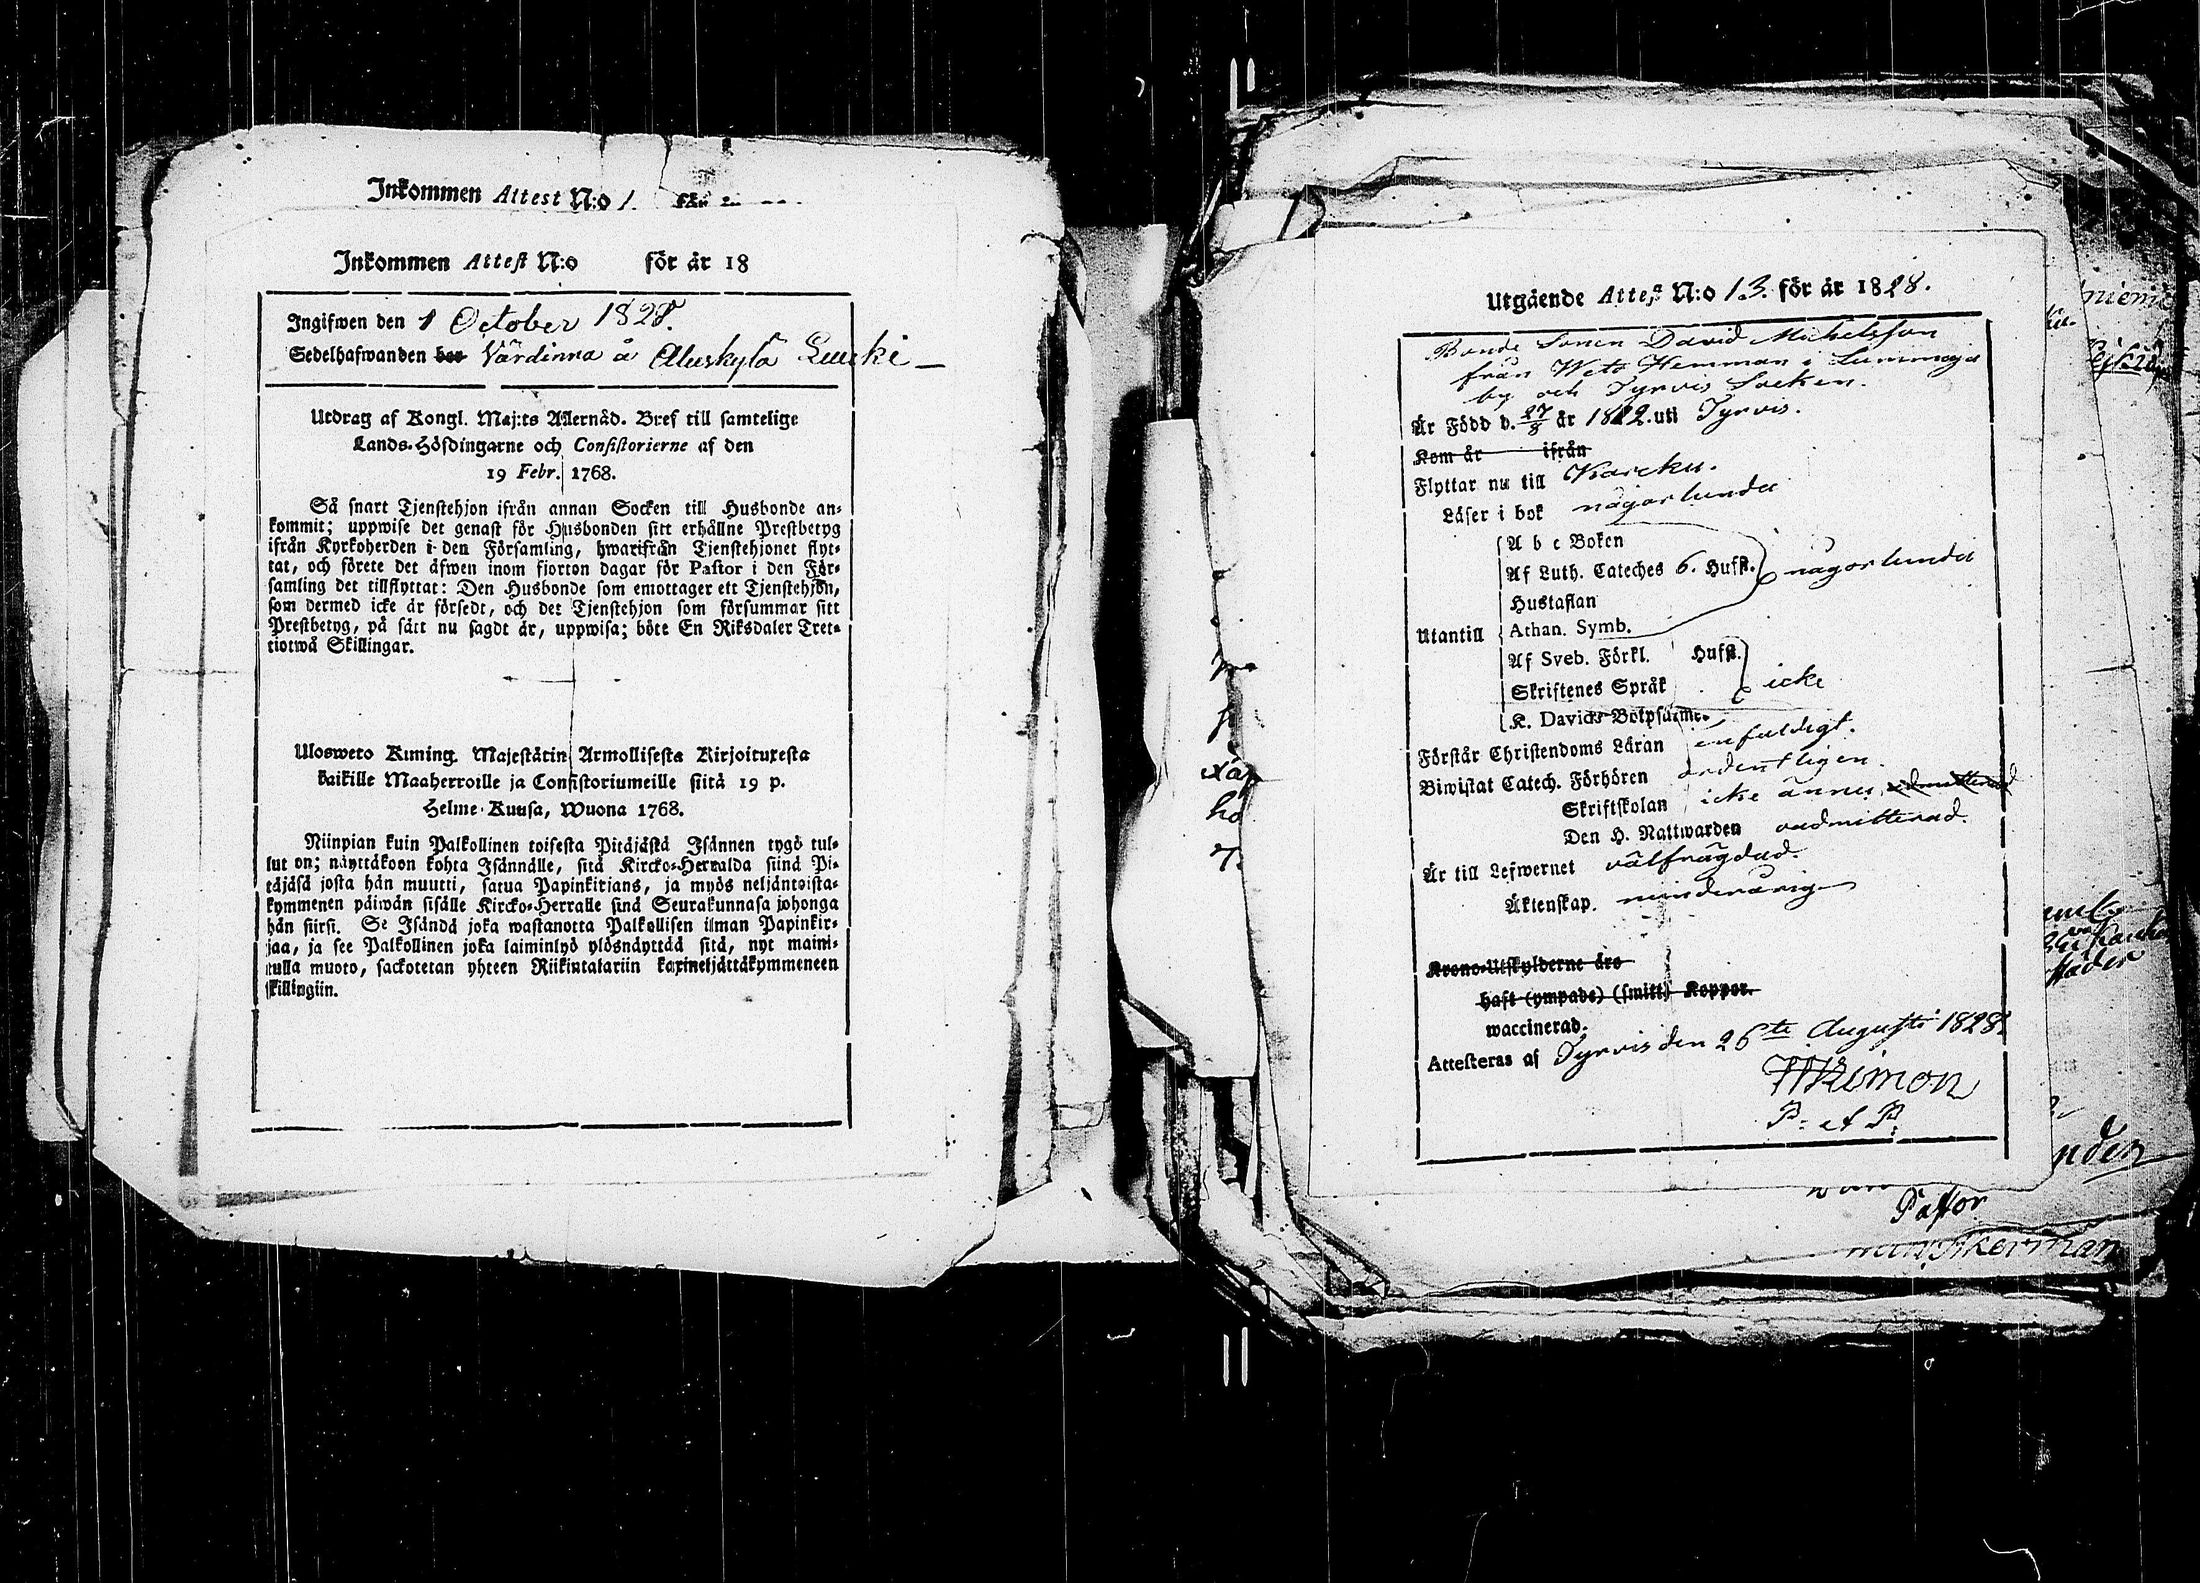 Inkommen Attest N:o 1. för
Inkommen Attest N:o för år 18
Ingifwen den 1 October 1828.
Sedelhafwanden bor Värdinna å Aluskylä Luucki
Utdrag af Kongl. Maj:ts Allernåd. Bref till samtelige
Lands-Höfdingarne och Consistorierne af den
19 Febr. 1768.
Så snart Tjenstehjon ifrån annan Socken till Husbonde an-
kommit; uppwise det genast för Husbonden sitt erhållne Prestbetyg
ifrån Kyrkoherden i den Församling, hwarifrån Tjenstehjonet flyt-
tat, och förete det äfwen inom fjorton dagar för Pastor i den För-
samling det tillflyttat: Den Husbonde som emottager ett Tjenstehjon,
som dermed icke är försedt, och det Tjenstehjon som försummar sitt
Prestbetyg, på sätt nu sagdt är, uppwisa; böte En Riksdaler Tret-
tiotwå Skillingar.
Ulosweto Kuning. Majestätin Armollisesta Kirjoituxesta
kaikille Maaherroille ja Consistoriumeille siitä 19 p.
Helme-Kuusa, Wuona 1768.
Niinpian kuin Palkollinen toisesta Pitäjästä Isännen tygö tul-
lut on; näyttäkoon kohta Isännälle, sitä Kircko-Herralda siinä Pi-
täjäsä josta hän muutti, satua Papinkirjans, ja myös neljäntoista-
kymmenen päiwän sisälle Kircko-Herralle sinä Seurakunnasa johonga
hän siirsi. Se Isändä joka wastanotta Palkollisen ilman Papinkir-
jaa, ja see Palkollinen joka laiminlyö ylösnäyttää sitä, nyt maini-
tulla muoto, sackotetan yhteen Riikintalariin kaxineljättäkymmeneen
skillingiin.
Utgående Attest N:o 13. för år 1828.
Bonde Sonen David Michelsson
från Weto Hemman i Lummaja
by och Tyrvis Socken.
Är Född d. 27/8 år 1812. uti Tyrvis.
Kom år ifrån
Flyttar nu till Karcku.
Läser i bok någorlunda
A b c Boken
Af Luth. Cateches 6. Hufst. någorlunda
Hustaflan
Utantill Athan. Symb.
Af Sveb. Förkl. Hufst.
Skriftenes Språk icke
K. Davids Botpsalmer
Förstår Christendoms Läran enfaldigt.
Biwistat Catech. Förhören ordentligen.
Skriftskolan icke ännu admitterad
Den H. Nattwarden oadmitterad.
Är till Lefwernet välfrägdad.
Äktenskap. minderårig
Krono-Utskylderne äro
haft (ympade) (smitt) Koppor.
waccinerad.
Attesteras af Tyrvis den 26te Augusti 1828.
P: et P:
Pastor